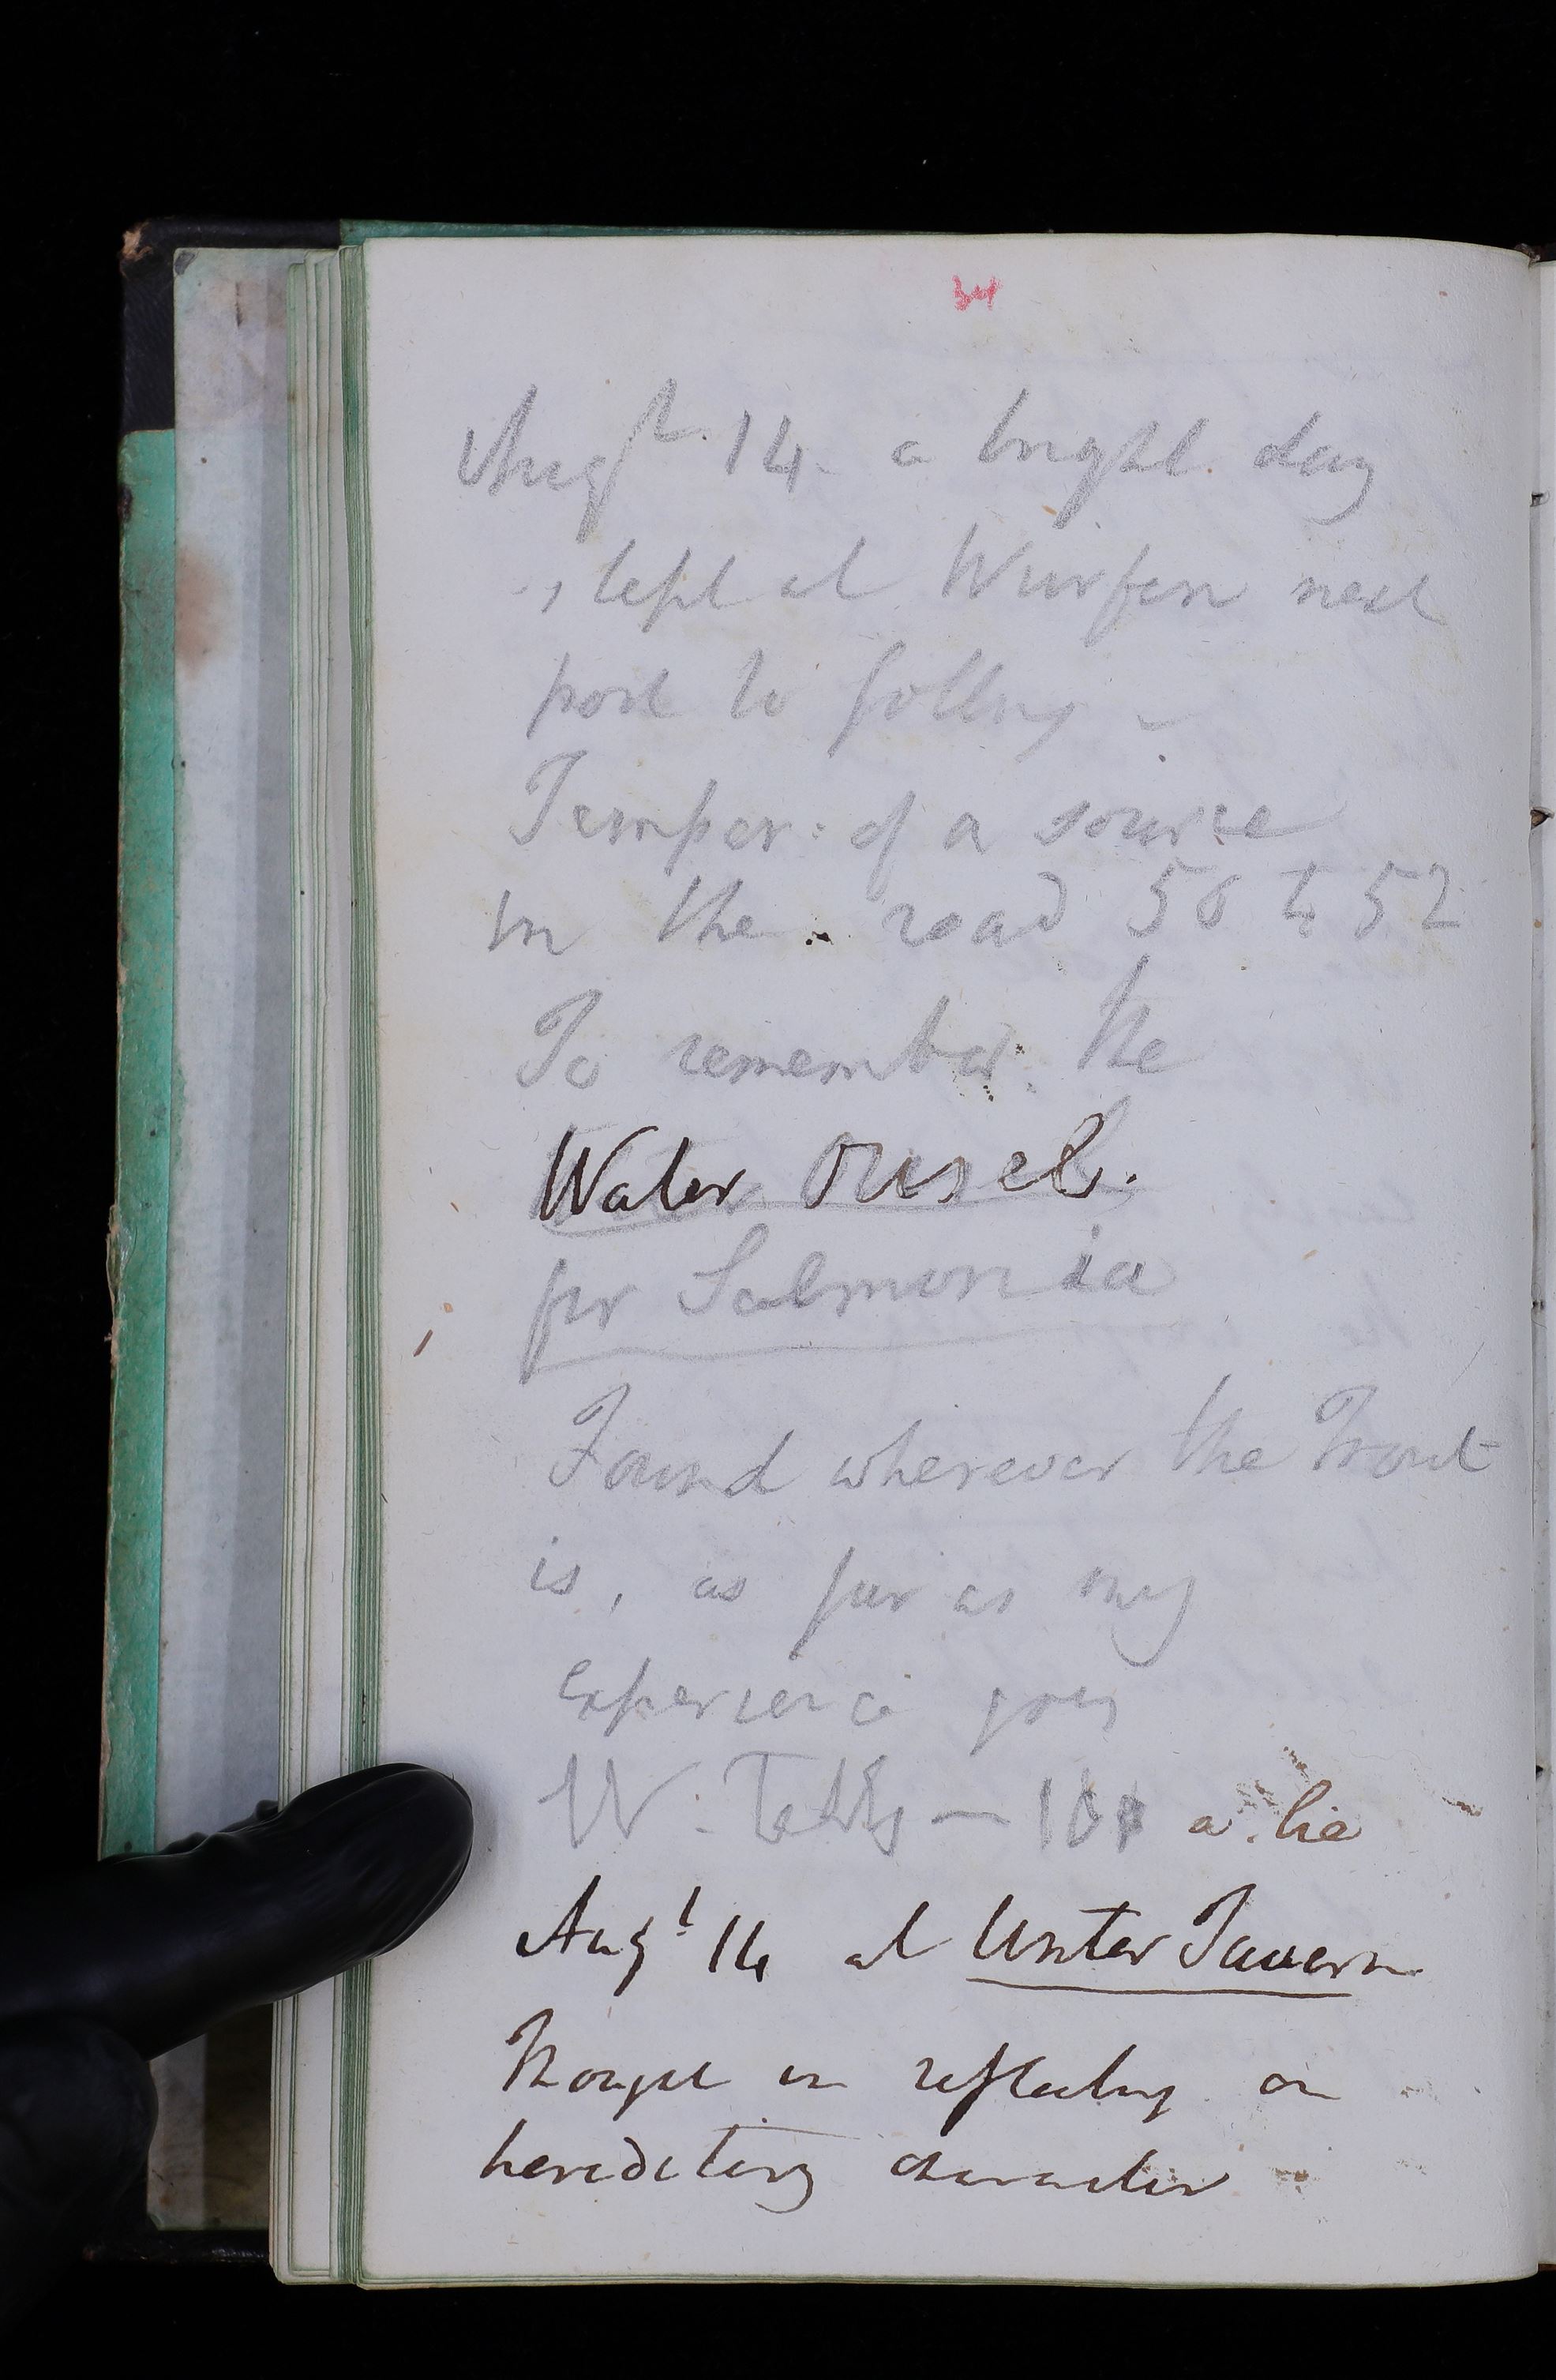 34
Augst. 14. a bright day
, slept at Wurfen next
post to Golling -
Temper: of a source
in the road 50 to 52
To remember the
Water Ousel.
for Salmonia
Found wherever the Trout
is, as far as my
experience goes
W. — a lie
Augt 14 at Unter Tauern
Thought in reflecting on
hereditary character